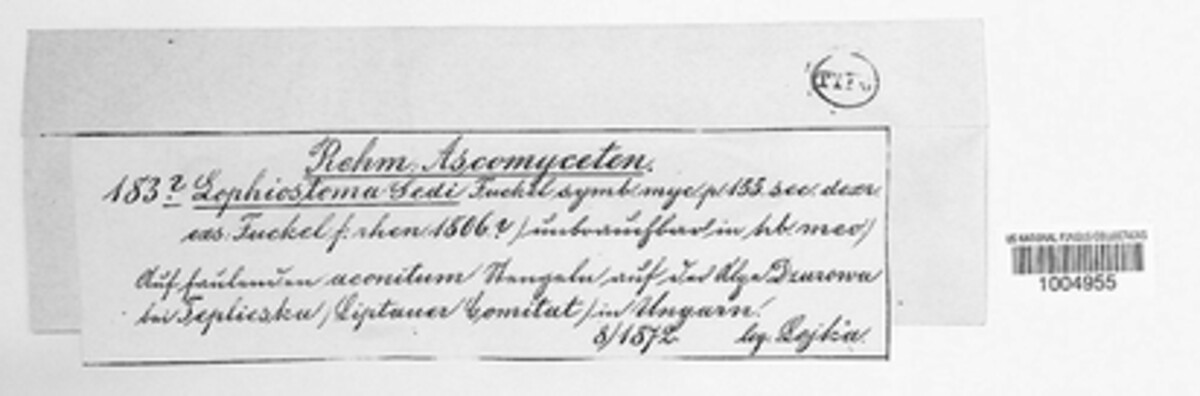 TYPE
Rehm: Ascomyceten.
183? Lophiostoma Sedi Fuckel symb. myc p 133. sec. descr.
exs. Fuckel f. rhen 1806? (unbrauchbar in hb. meo)
Auf faulenden aconitum Stengeln auf der Alpe Dzurowa
bei Teplicska (Liptauer Comitat) in Ungarn.
8/1872 leg. Lojka.
US NATIONAL FUNGUS COLLECTIONS
1004955